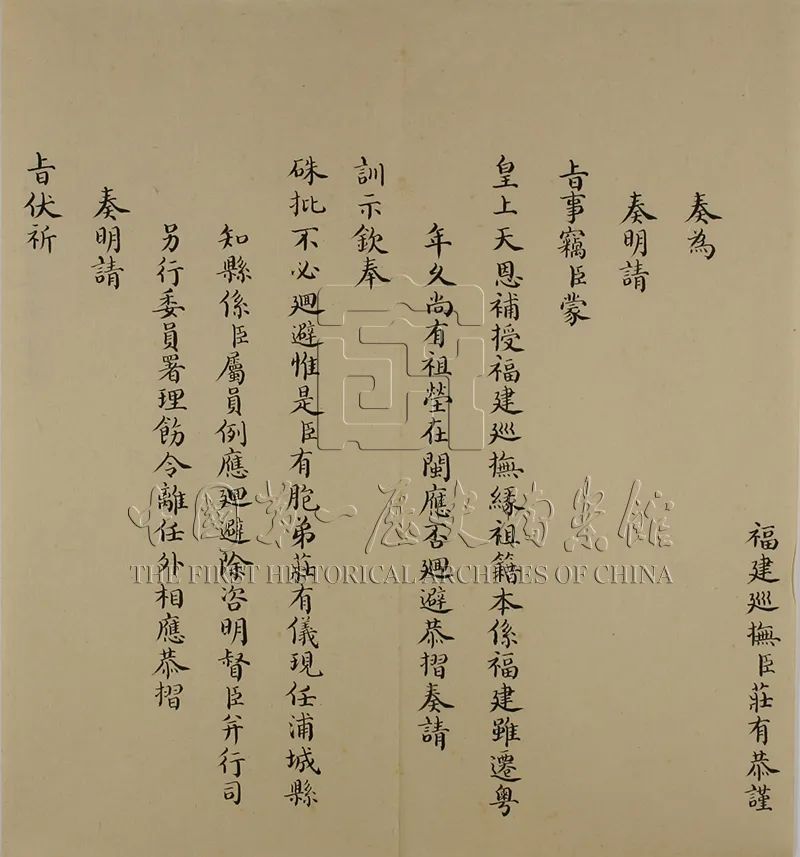 福建廵撫臣莊有恭謹
奏為
奏明請
旨事竊臣蒙
皇上天恩補授福建廵撫緣祖籍本係福建雖遷粤
年久尚有祖塋在閩應否廻避恭摺奏請
訓示欽奉
硃批不必廻避惟是臣有胞弟莊有儀現任浦城縣
知縣係臣屬員例應廻避除咨明督臣并行司
另行委員署理飭令離任外相應恭摺
奏明請
旨伏祈
中國第一歷史檔案館
THE FIRST HISTORICAL ARCHIVES OF CHINA